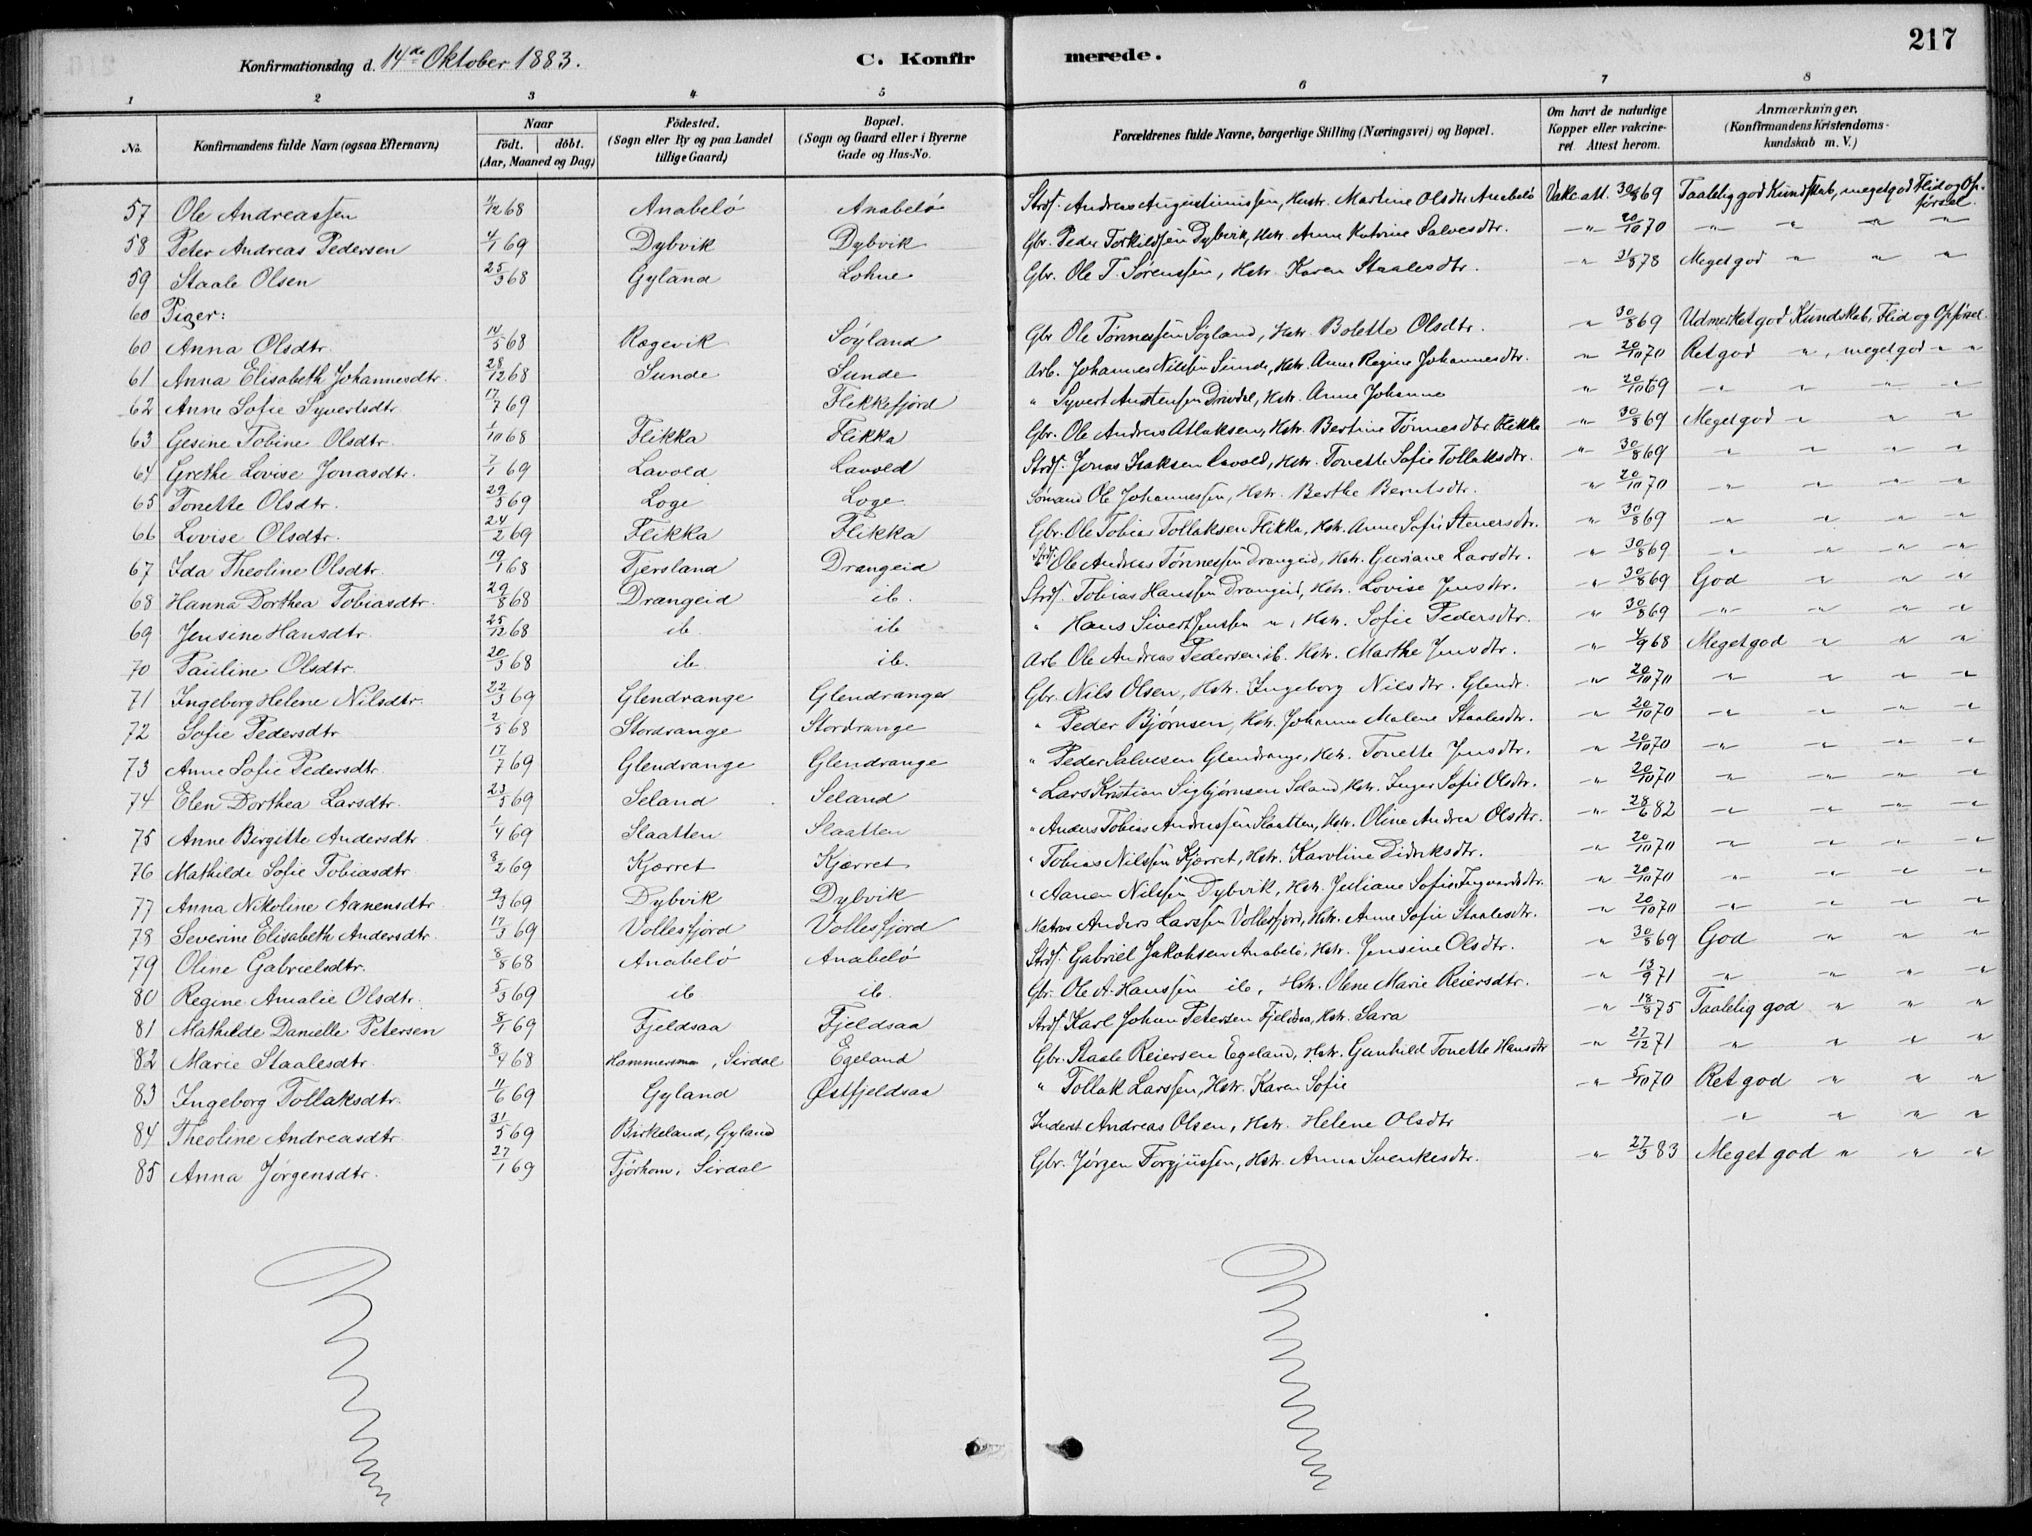 217
Konfirmationsdag d. 14de Oktober 1883. C. Konfirmerede.
1 2 3 4 5 6 7 8
No. Konfirmandens fulde Navn (ogsaa Efternavn) Naar født. døbt. (Aar, Maaned og Dag) Fødested. (Sogn eller By og paa Landet tillige Gaard) Bopæl. (Sogn og Gaard eller i Byerne Gade og Hus-No. Forældrenes fulde Navne, borgerlige Stilling (Næringsvei) og Bopæl. Om havt de naturlige Kopper eller vakcineret. Attest herom. Anmærkninger. (Konfirmandens Kristendomskundskab m. V.)
57 Ole Andreassen 68 Anabelö Anabelö Strds. Andreas Augustinussen, Hustr. Martine Olsdtr. Anabelö Vakc att. 30/8 69 Taalelig god Kundskab, meget god Flid og Opförsel.
58 Peter Andreas Pedersen 4/1 69 Dybvik Dybvik Gbr. Peder Torkildsen Dybvik, Hstr. Anne Katrine Salvesdtr. " 20/10 70 " " " "
59 Staale Olsen 25/3 68 Gyland Lohne Gbr. Ole T. Sörenssen, Hstr. Karen Staalesdtr. " 31/8 78 Meget god " " "
60 Piger:
60 Anna Olsdtr. 14/5 68 Rægevik Söyland Gbr. Ole Tönnessen Söyland, Hstr. Bolette Olsdtr. " 30/8 69 Udmerket god Kundskab, Flid og Opförsel.
61 Anna Elisabeth Johannesdtr. 28/12 68 Sunde Sunde Arb. Johannes Nilsen Sunde, Hstr. Anne Regine Johannesdtr. " 20/10 70 Ret god ", meget god " "
62 Anne Sofie Syvertsdtr. 17/7 69 Flekkefjord " Syvert Austensen Drivdal, Hstr. Anne Johanne " 20/10 69 " " " "
63 Gesine Tobine Olsdtr. 1/10 68 Flikka Flikka Gbr. Ole Andreas Atlaksen, Hstr. Bertine Tönnesdtr. Flikka " 30/8 69 Meget god " " "
64 Grethe Lovise Jonasdtr. 7/1 69 Lavold Lavold Strds. Jonas Isaksen Lavold, Hstr. Tonette Sofie Tollaksdtr. " 30/8 69 " " " "
65 Tonette Olsdtr. 29/5 69 Loge Loge Sömand Ole Johannessen, Hstr. Berthe Berntsdtr. " 20/10 70 " " " "
66 Lovise Olsdtr. 24/2 69 Flikka Flikka Gbr. Ole Tobias Tollaksen Flikka, Hstr. Anne Sofie Stenersdtr. " 30/8 69 " " " "
67 Ida Theoline Olsdtr. 19/1 68 Tjersland Drangeid Strds. Ole Andreas Tönnessen Drangeid, Hstr. Guriane Larsdtr. " 30/8 69 " " " "
68 Hanna Dorthea Tobiasdtr. 29/8 68 Drangeid ib. Strds. Tobias Hanssen Drangeid, Hstr. Lovise Jensdtr. " 30/8 69 God " " "
69 Jensine Hansdtr. 25/12 68 ib. ib " Hans Sivert Jenssen ", Hstr. Sofie Pedersdtr. " 30/8 69 " " " "
70 Pauline Olsdtr. 20/3 68 ib. ib. Arb. Ole Andreas Pedersen ib. Hstr. Marthe Jensdtr. " 4/9 68 Meget god " " "
71 Ingeborg Helene Nilsdtr. 22/3 69 Glendrange Glendrange Gbr. Nils Olsen, Hstr. Ingeborg Nilsdtr. Glendr. " 20/10 70 " " " "
72 Sofie Pedersdtr. 2/3 68 Stordrange Stordrange " Peder Bjørnsen, Hstr. Johanne Malene Staalesdtr. " 20/10 70 " " " "
73 Anne Sofie Pedersdtr. 17/7 69 Glendrange Glendrange " Peder Salvesen Glendrange, Hstr. Tonette Jensdtr. " 20/10 70 " " " "
74 Elen Dorthea Larsdtr. 23/5 69 Seland Seland " Lars Kristian Sigbjørnsen Seland, Hstr. Inger Sofie Olsdtr. " 20/10 70 " " " "
75 Anne Birgitte Andersdtr. 1/4 69 Slaatten Slaatten " Anders Tobias Andreassen Slaatten, Hstr. Oline Andrea Olsdtr. " 28/6 82 " " " "
76 Mathilde Sofie Tobiasdtr. 8/2 69 Kjærret Kjærret " Tobias Nilssen Kjærret, Hstr. Karoline Didriksdtr. " 20/10 70 " " " "
77 Anna Nikoline Aanensdtr. 9/3 69 Dybvik Dybvik " Aanen Nilssen Dybvik, Hstr. Juliane Sofie Ingvardsdtr. " 20/10 70 " " " "
78 Severine Elisabeth Andersdtr. 17/3 69 Vollesfjord Vollesfjord Matros Anders Larssen Vollesfjord, Hstr. Anne Sofie Staalesdtr. " 20/10 70 " " " "
79 Oline Gabrielsdtr. 8/8 68 Anabelö Anabelö Strds. Gabriel Jakobsen Anabelö, Hstr. Jensine Olsdtr. " 30/8 69 God " " "
80 Regine Amalie Olsdtr. 5/3 69 ib. ib. Gbr. Ole A. Hanssen ib, Hstr. Olene Marie Reiersdtr. " 13/9 71 " " " "
81 Mathilde Danielle Petersen 8/1 69 Fjeldsaa Fjeldsaa Strds. Karl Johan Petersen Fjeldsaa, Hstr. Sara " 18/8 75 Taalelig god " " "
82 Marie Staalesdtr. 8/4 68 Hammersmœ, Sirdal Egeland Gbr. Staale Reiersen Egeland, Hstr. Gunhild Tonette Hansdtr " 27/12 71 " " " "
83 Ingeborg Tollaksdtr. 11/6 69 Gyland Østfjeldsaa " Tollak Larssen, Hstr. Karen Sofie " 5/10 70 Ret god " " "
84 Theoline Andreasdtr. 31/5 69 Birkeland, Gyland Inderst Andreas Olsen, Hstr. Helene Olsdtr " " " "
85 Anna Jørgensdtr. 27/1 69 Tjörhom, Sirdal Gbr. Jørgen Torgjussen, Hstr. Anna Svenkesdtr. " 27/3 83 Meget god " " "